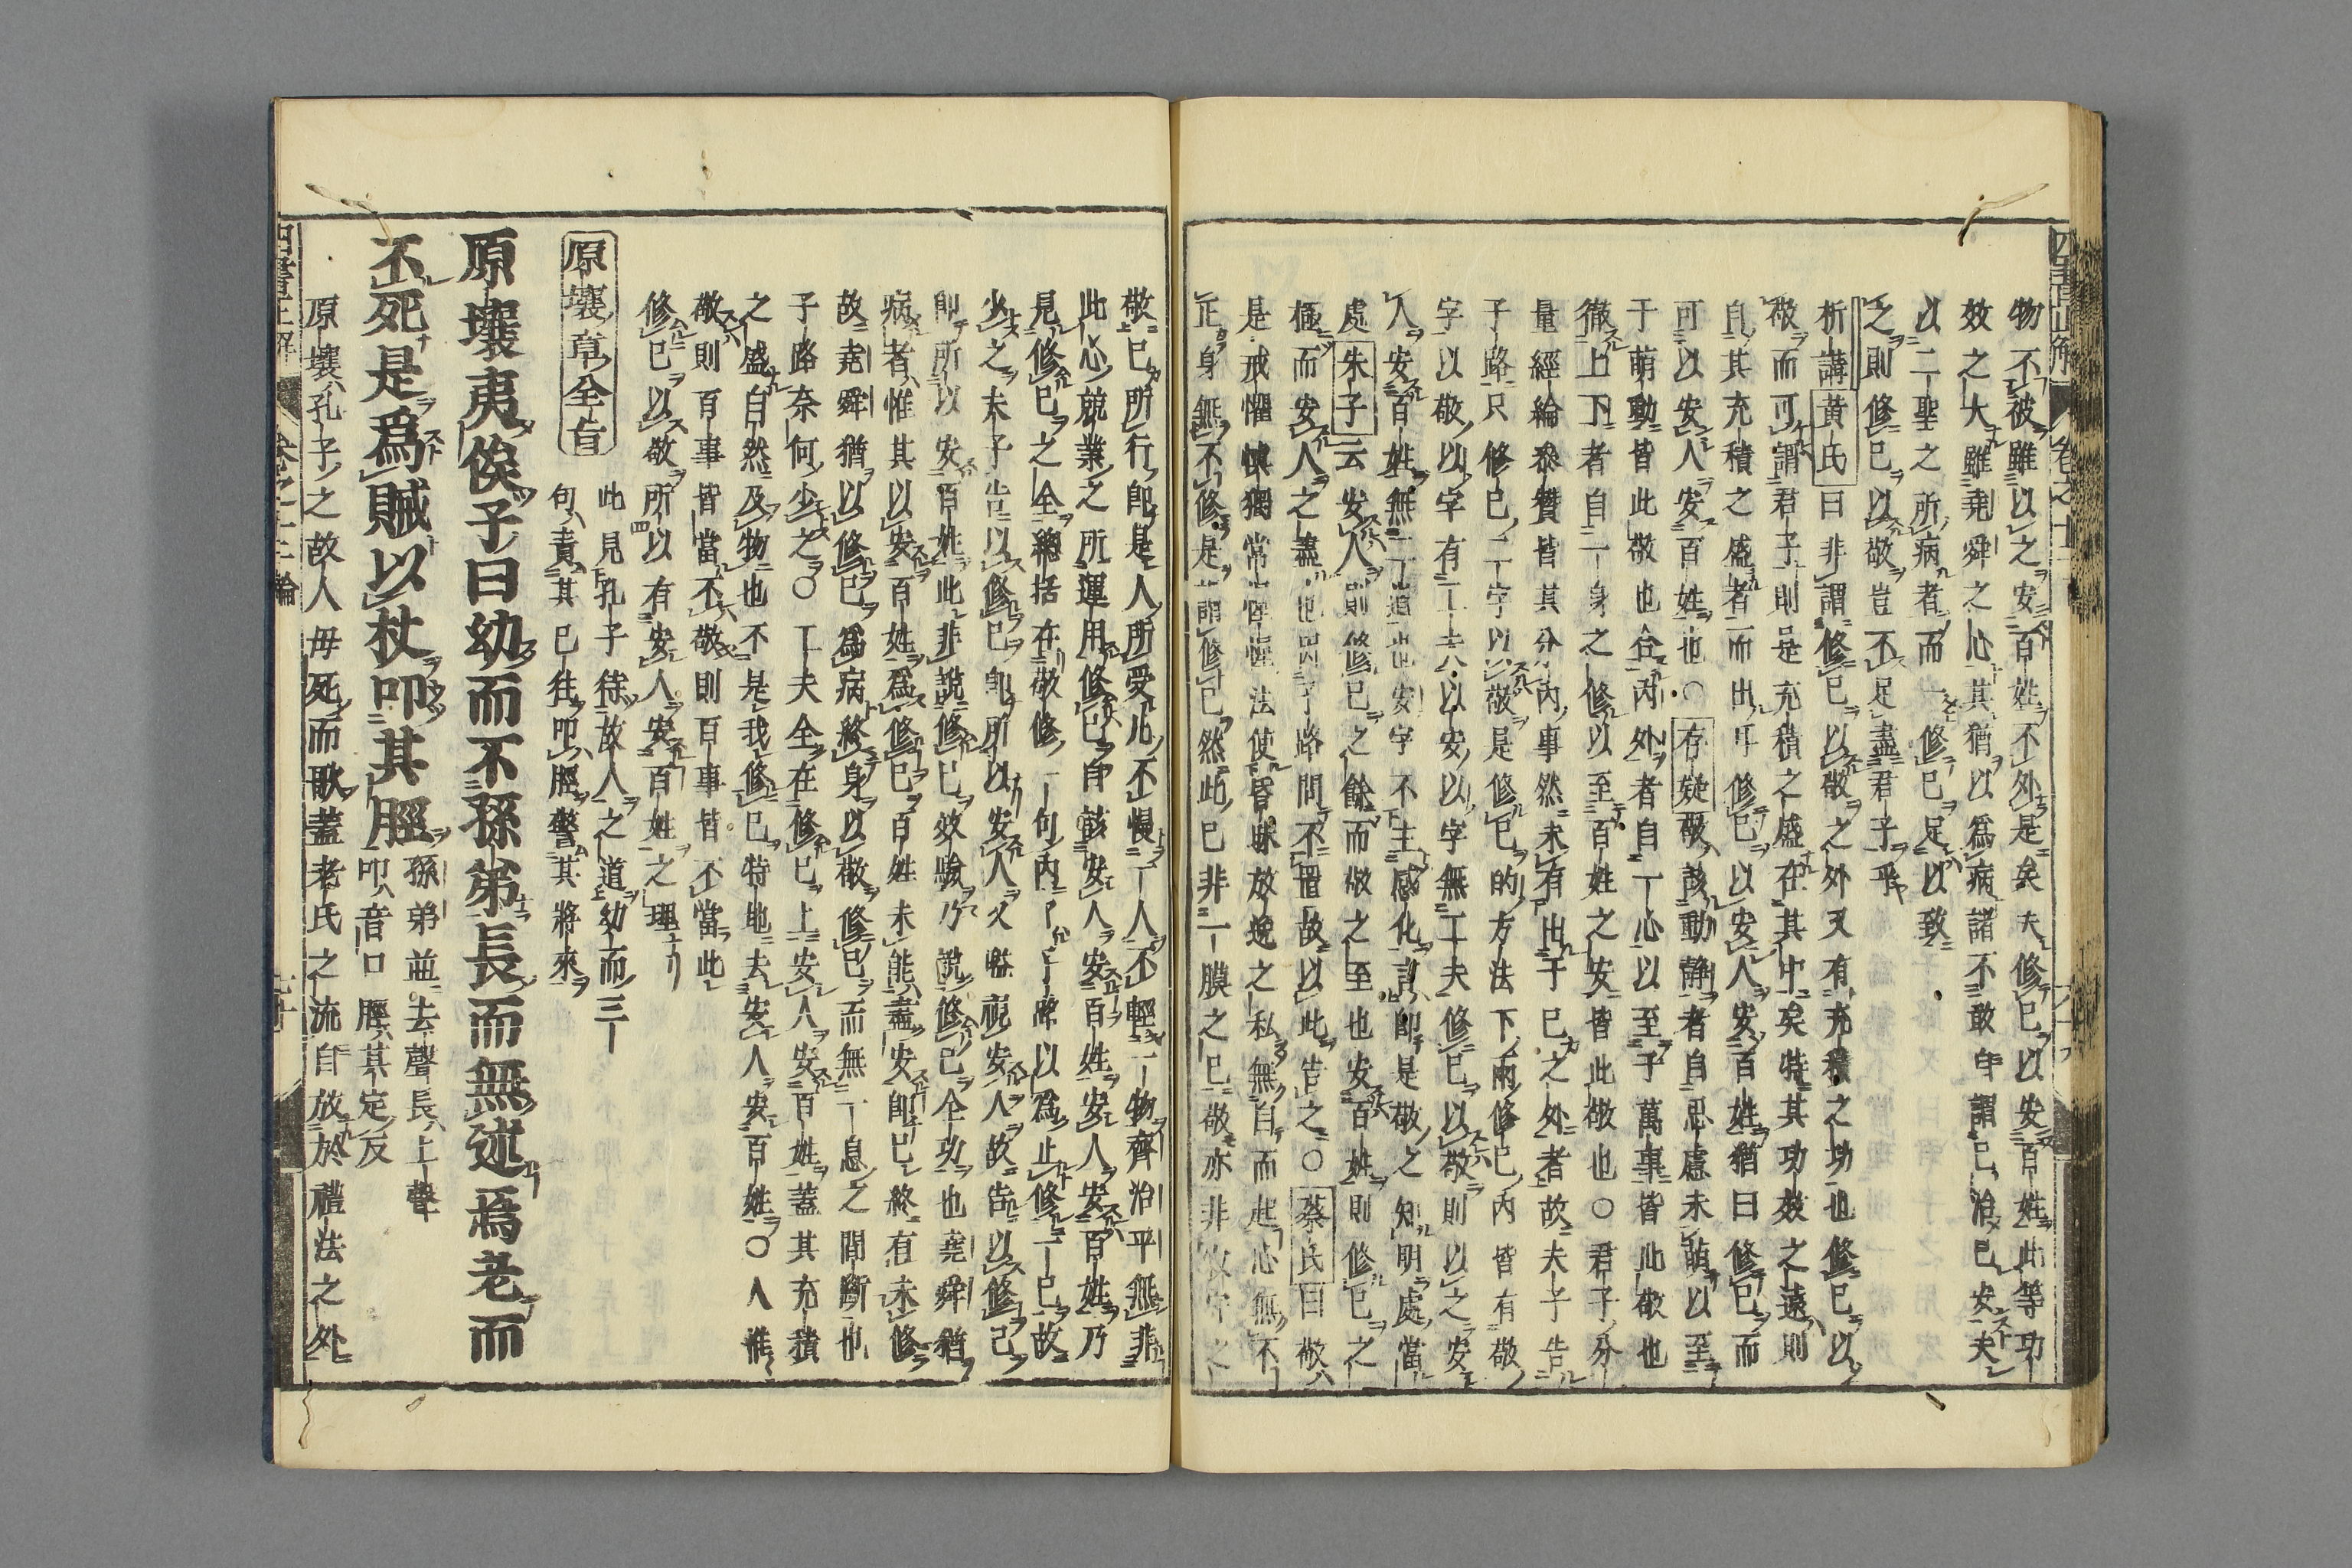 物不被雖以之安百姓不外是矣夫修己以安百姓此等功
效之大雖堯舜之心其猶以為病諸不敢自謂己治己安夫
以二聖之所病者而一修己足以致
之則修己以敬豈不足盡君子乎
析講黃氏曰非謂修己以敬之外又有充積之功也修己以
敬而可謂君子則是充積之盛在其中矣特其功效之遠則
自其充積之盛者而出耳修己以安人安百姓猶曰修己而
可以安人安百姓也○存疑敬該動靜者自思慮未萌以至
于萌動皆此敬也合內外者自一心以至于萬事皆此敬也
徹上下者自一身之修以至百姓之安皆此敬也○君子分
量經綸參贊皆其分內事然未有出于己之外者故夫子告
子路只修己二字以敬是修己的方法下兩修己內皆有敬
字以敬以字有工夫以安以字無工夫修己以敬則以之安
人安百姓無二道也安字不主感化言即是敬之知明處當
處朱子云安人則修己之餘而敬之至也安百姓則修己之
極而安人之盡也因子路問不置故以此告之○蔡氏曰敬
是戒懼慎獨常惺惺法使昏昧放逸之私無自而起心無不
正身無不修是謂修己然此己非一膜之己敬亦非
敬己所行即是人所受凡不慢一人不輕一物齊治平無非
此心兢業之所運用修己自該安人安百姓安人安百姓乃
見修己之全總括在敬修一句內了子路以為止修一己故
少之夫子告以修己即所以安人又謂安人故告以修己
即所以安百姓此非說修己效驗乃說修己全功也堯舜猶
病者惟其以安百姓為修己百姓未能盡安即己終有未修
故堯舜猶以修己為病終身以敬修己而無一息之間斷也
子路奈何少之○工夫全在修己上安人安百姓蓋其充積
之盛自然及物也不是我修己特地去安人安百姓○人惟
敬則百事皆當不敬則百事皆不當此
修己以敬所以有安人安百姓之理
原壤章全旨
此見孔子待故人之道幼而三
句責其已往叩脛警其將來
原壤夷俟子曰幼而不孫弟長而無述焉老而
不死是為賊以杖叩其脛
孫弟並去聲長上聲
叩音口脛其定反
原壤孔子之故人母死而歌蓋老氏之流自放於禮法之外